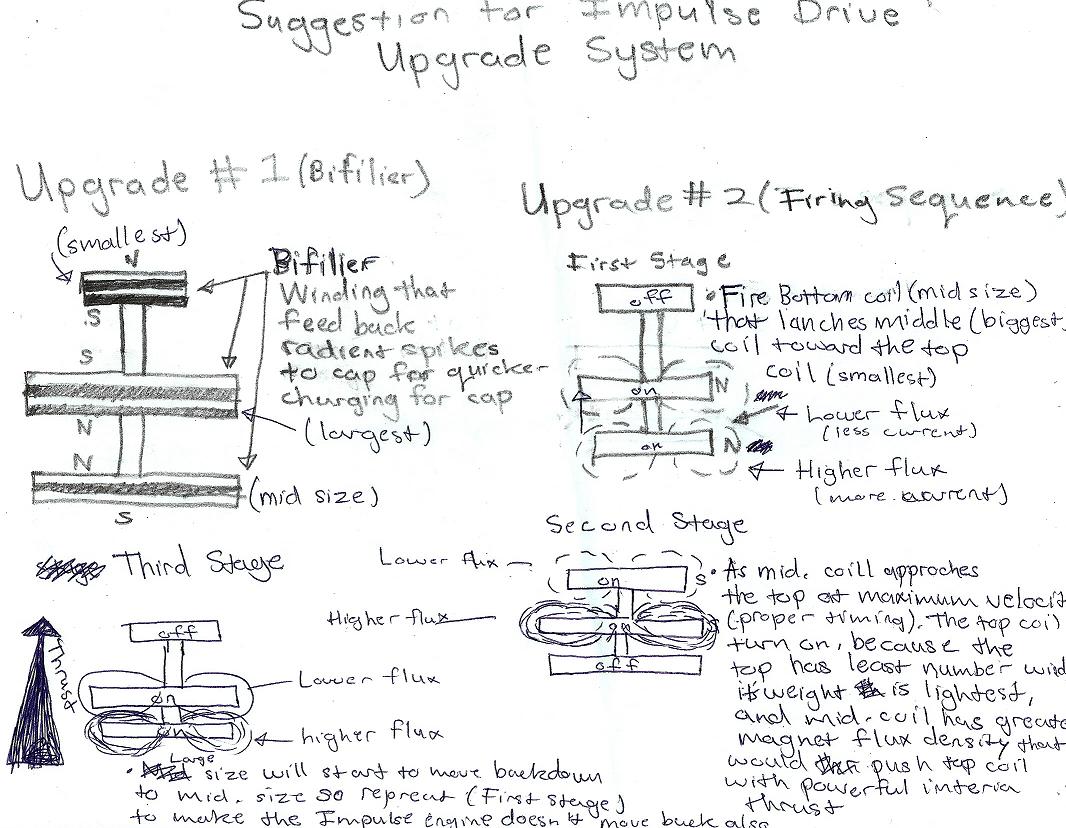 Suggestion for Impulse Drive
Upgrade System
Upgrade # 1 (Bifilier)
(smallest)
N
S
S
N
N
S
Bifilier
Winding that
feed back
radient spikes
to cap for quicker
churging for cap
(largest)
(mid size)
Upgrade # 2 (Firing Sequence)
First Stage
off
on
N
on
N
• Fire Bottom coil (mid size)
that lanches middle (biggest)
coil toward the top
coil (smallest)
Lower flux
(less current)
Higher flux
(more current)
Second Stage
Lower flux
Higher flux
on
S
on
S
off
• As mid. coill approches
the top at maximum velocit
(proper timing). The top coil
turn on, because the
top has least number wind
it weight is lightest,
and mid-coil has greate
magnet flux density that
would push top coil
with powerful interia
thrust
Third Stage
Thrust
off
on
on
Lower flux
higher flux
Large
• size will start to move backdown
to mid. size so repreat (First stage)
to make the Impulse engine doesn't move back also